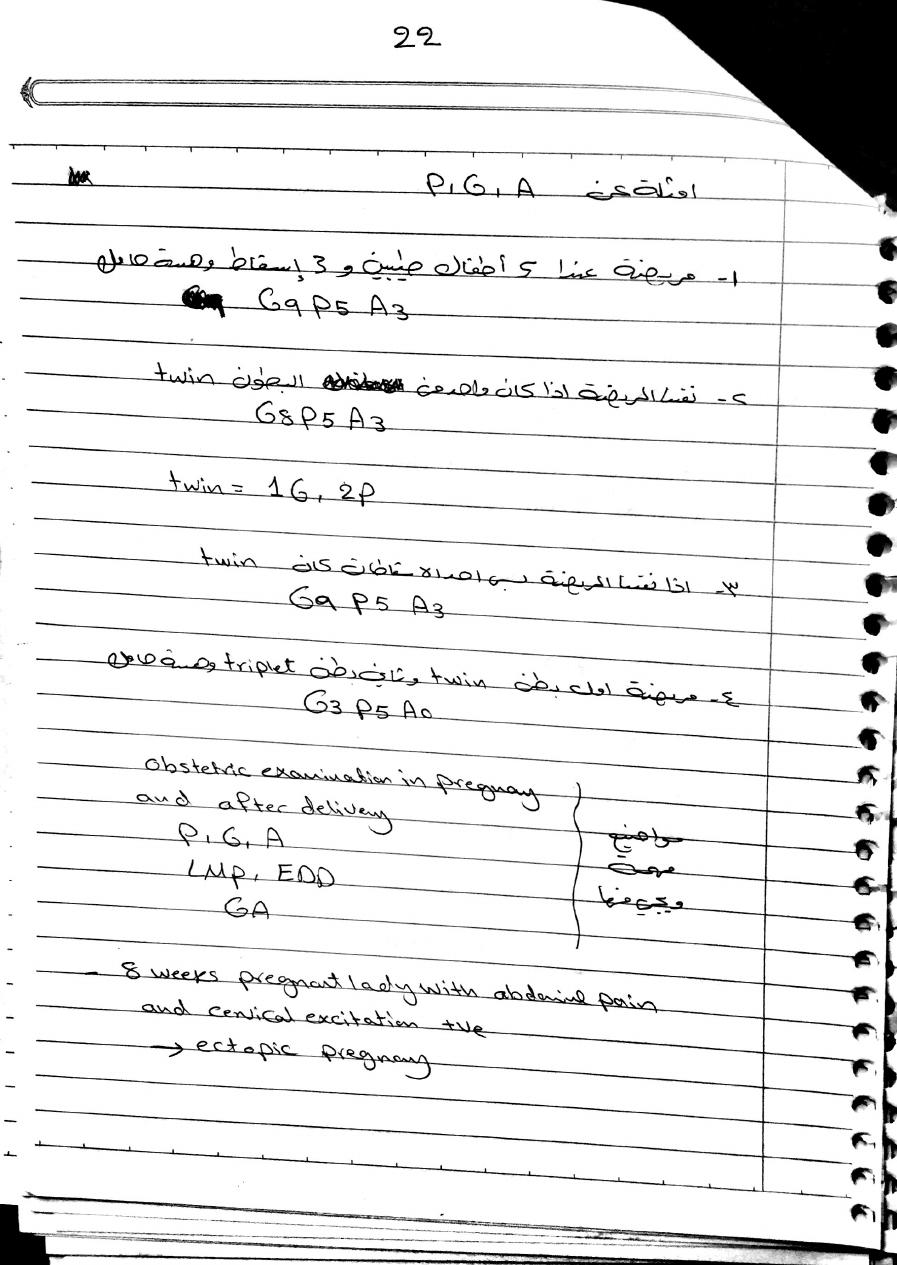 22
امثلة عن P, G, A
١- مريضة عندا 5 أطفال طيبين و 3 إسقاط وهسة حامل
G9 P5 A3
٢- نفسا المريضة اذا كان واحد من البطون twin
G8 P5 A3
twin = 1G, 2P
٣- اذا نفسا المريضة بس احد الاسقاطات كان twin
G9 P5 A3
٤- مريضة اول بطن twin وثاني بطن triplet وهسة حامل
G3 P5 A0
obstetric examination in pregnancy
and after delivery
P, G, A
LMP, EDD
GA
مواضيع
مهمة
ويجي منها
- 8 weeks pregnant lady with abdominal pain
and cervical excitation +ve
→ ectopic pregnancy